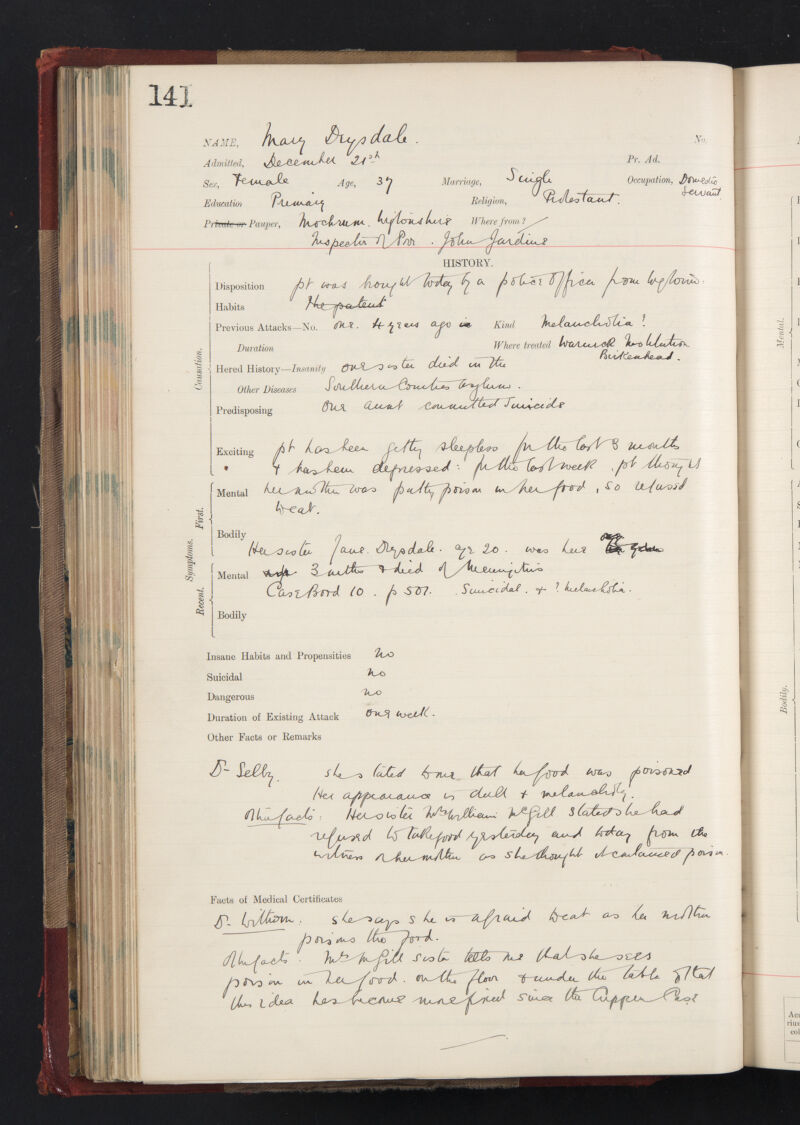 141
NAME, Mary Drysdale. No.
Admitted, December 21st Pr. Ad.
Sex, Female Age, 37 Marriage, Single Occupation, Domestic Servant
Education Primary Religion, Protestant.
Private or Pauper, Mochrum. Wigtonshire Where from?
Inspector of Poor. John Jardine
HISTORY.
Disposition pt was brought today by a police officer from Wigtown.
Habits the patent
Previous Attacks—No. one. 4 years ago Kind Melancholia?
Duration Where treated Warwick Institution Birkenhead.
Causation.
Hered History—Insanity one sister died in the
Other Diseases Southern Counties Asylum.
Predisposing One aunt committed Suicide
Exciting pt has been getting sleepless for the last 3 months
& has been depressed: for the last week, pt thought
Mental her mother was putting poison in her food, so refused
to eat.
Symptoms. First.
Bodily
Her sister Jane Drysdale. age 20. was here
Mental 3 mths & died of Meningitis
Case Book 10. p 507. Suicidal. & ? Melancholia.
Recent.
Bodily
Insane Habits and Propensities No
Suicidal No
Dangerous No
Duration of Existing Attack one week.
Other Facts or Remarks
Dr Selby. she stated to me that her food was poisoned
Her appearance is dull & melancholy.
Other facts: Her sister Mrs William McGill stated she had
refused to take food yesterday and today from the
witness or her mother as she thought it contained poison.
Facts of Medical Certificates
Dr. she says she is afraid to eat as her mother
poisons the food.
Other facts. Mrs McGill sister tells me that she sees
poison in her food. on the floor & under the table & that
this idea has become more fixed since the Cupper Case
Mental.
Bodily.